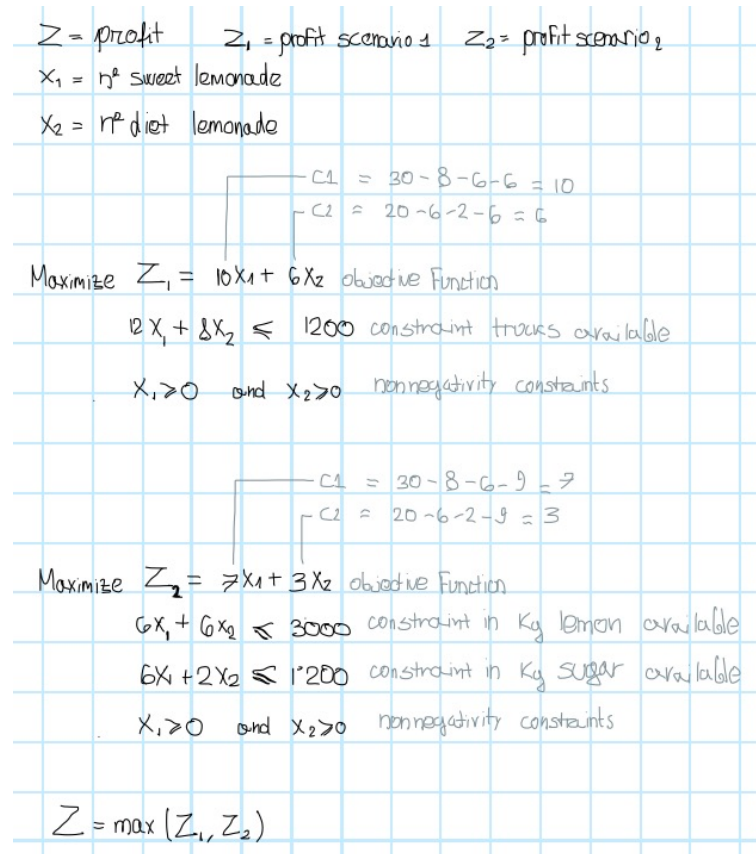 Z = profit Z₁ = profit scenario 1 Z₂ = profit scenario 2
X₁ = nº sweet lemonade
X₂ = nº diet lemonade
C1 = 30-8-6-6 = 10
C2 = 20-6-2-6 = 6
Maximize Z₁ = 10X₁ + 6X₂ objective Function
12X₁ + 8X₂ ⩽ 1200 constraint trucks available
X₁⩾0 and X₂⩾0 nonnegativity constaints
C1 = 30-8-6-9 = 7
C2 = 20-6-2-9 = 3
Maximize Z₂ = 7X₁ + 3X₂ objective Function
6X₁ + 6X₂ ⩽ 3000 constraint in Kg lemon available
6X₁ + 2X₂ ⩽ 1'200 constraint in Kg sugar available
X₁⩾0 and X₂⩾0 nonnegativity constaints
Z = max (Z₁, Z₂)